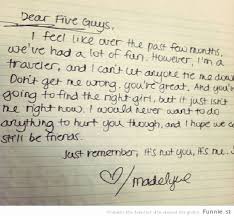 Dear Five Guys,
I feel like over the past few months,
we've had a lot of fun. However, I'm a
traveler, and I can't let anyone tie me down.
Don't get me wrong, you're great. And you're
going to find the right girl, but it just isn't
me right now. I would never want to do
anything to hurt you though, and I hope we can
still be friends.
Just remember, it's not you, it's me.
♡/madelyne
Funnie.st